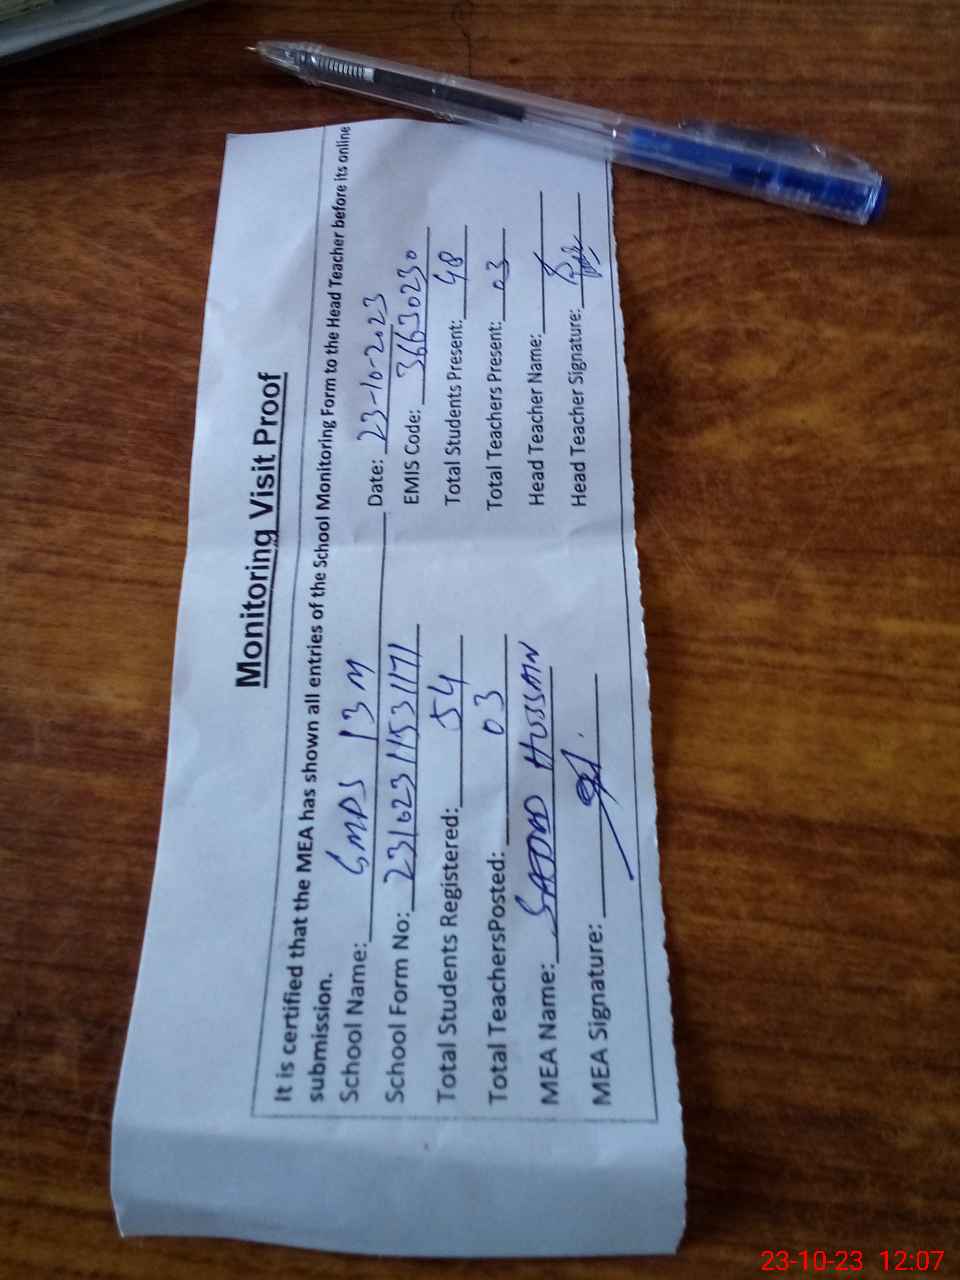 Monitoring Visit Proof
It is certified that the MEA has shown all entries of the School Monitoring Form to the Head Teacher before its online
submission.
School Name: GMPS 13 M Date: 23-10-2023
School Form No: 23102311531171 EMIS Code: 36630230
Total Students Registered: 54 Total Students Present: 48
Total TeachersPosted: 03 Total Teachers Present: 03
MEA Name: SADDAM HUSSAIN Head Teacher Name:
MEA Signature: Head Teacher Signature:
23-10-23 12:07